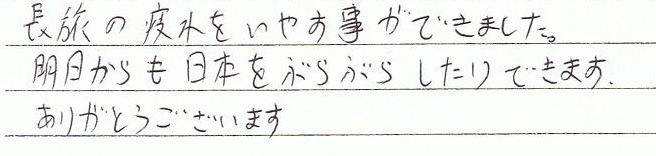 長旅の疲れをいやす事ができました。
明日からも日本をぶらぶらしたりできます.
ありがとうございます